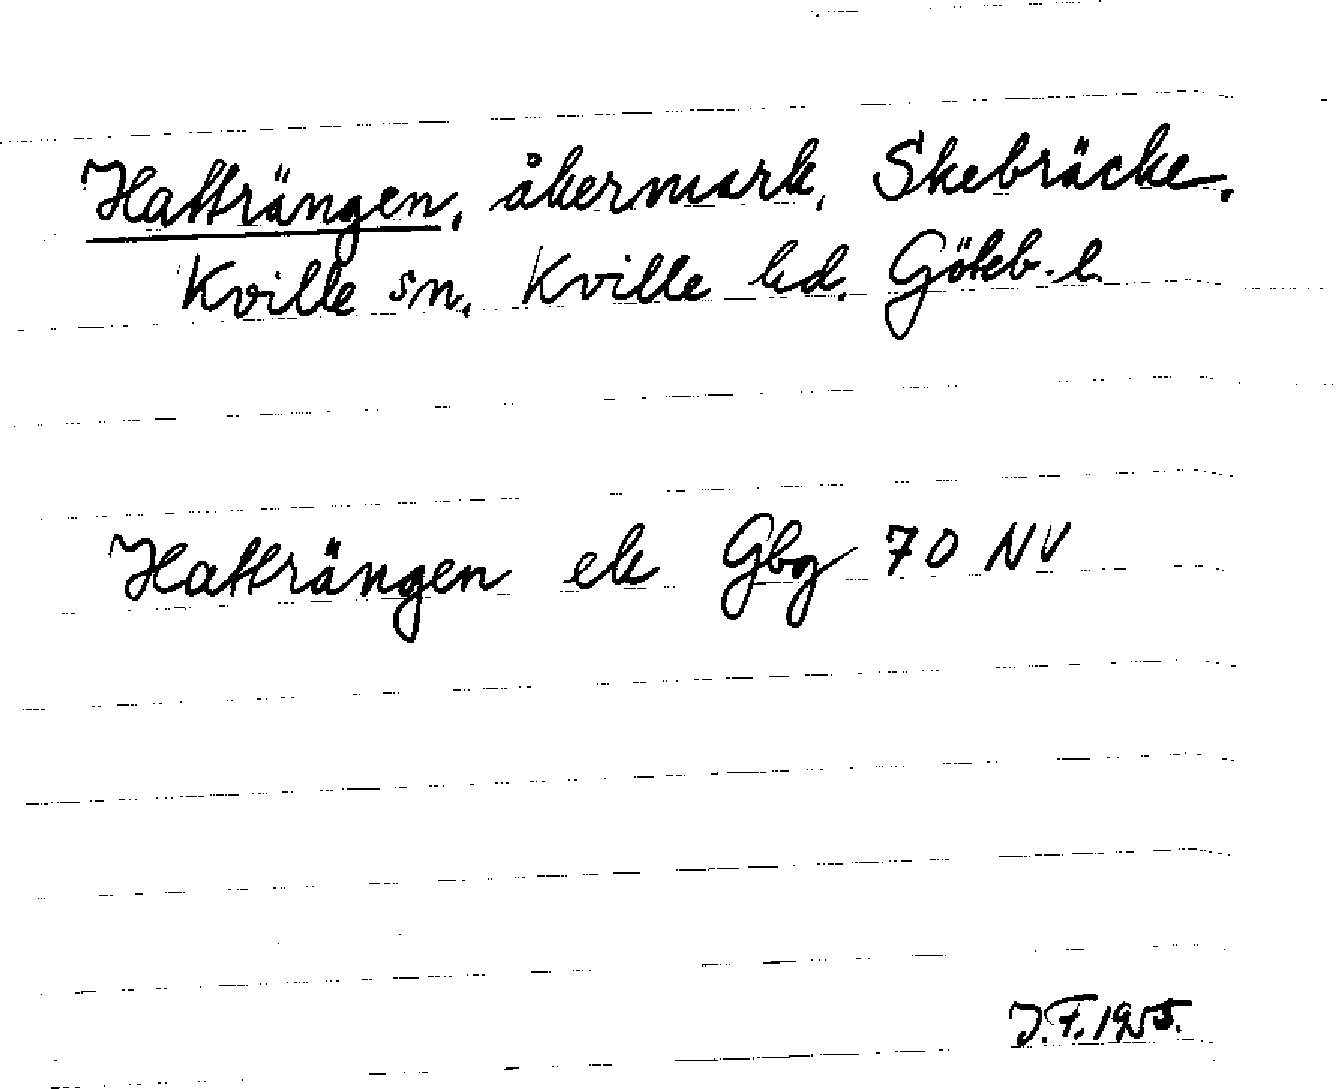 Hatträngen, åkermark, Skebräcke,
Kville sn. Kville hd. Göteb. l.
Hatträngen ek Gbg 70 NV
J.F. 1925.